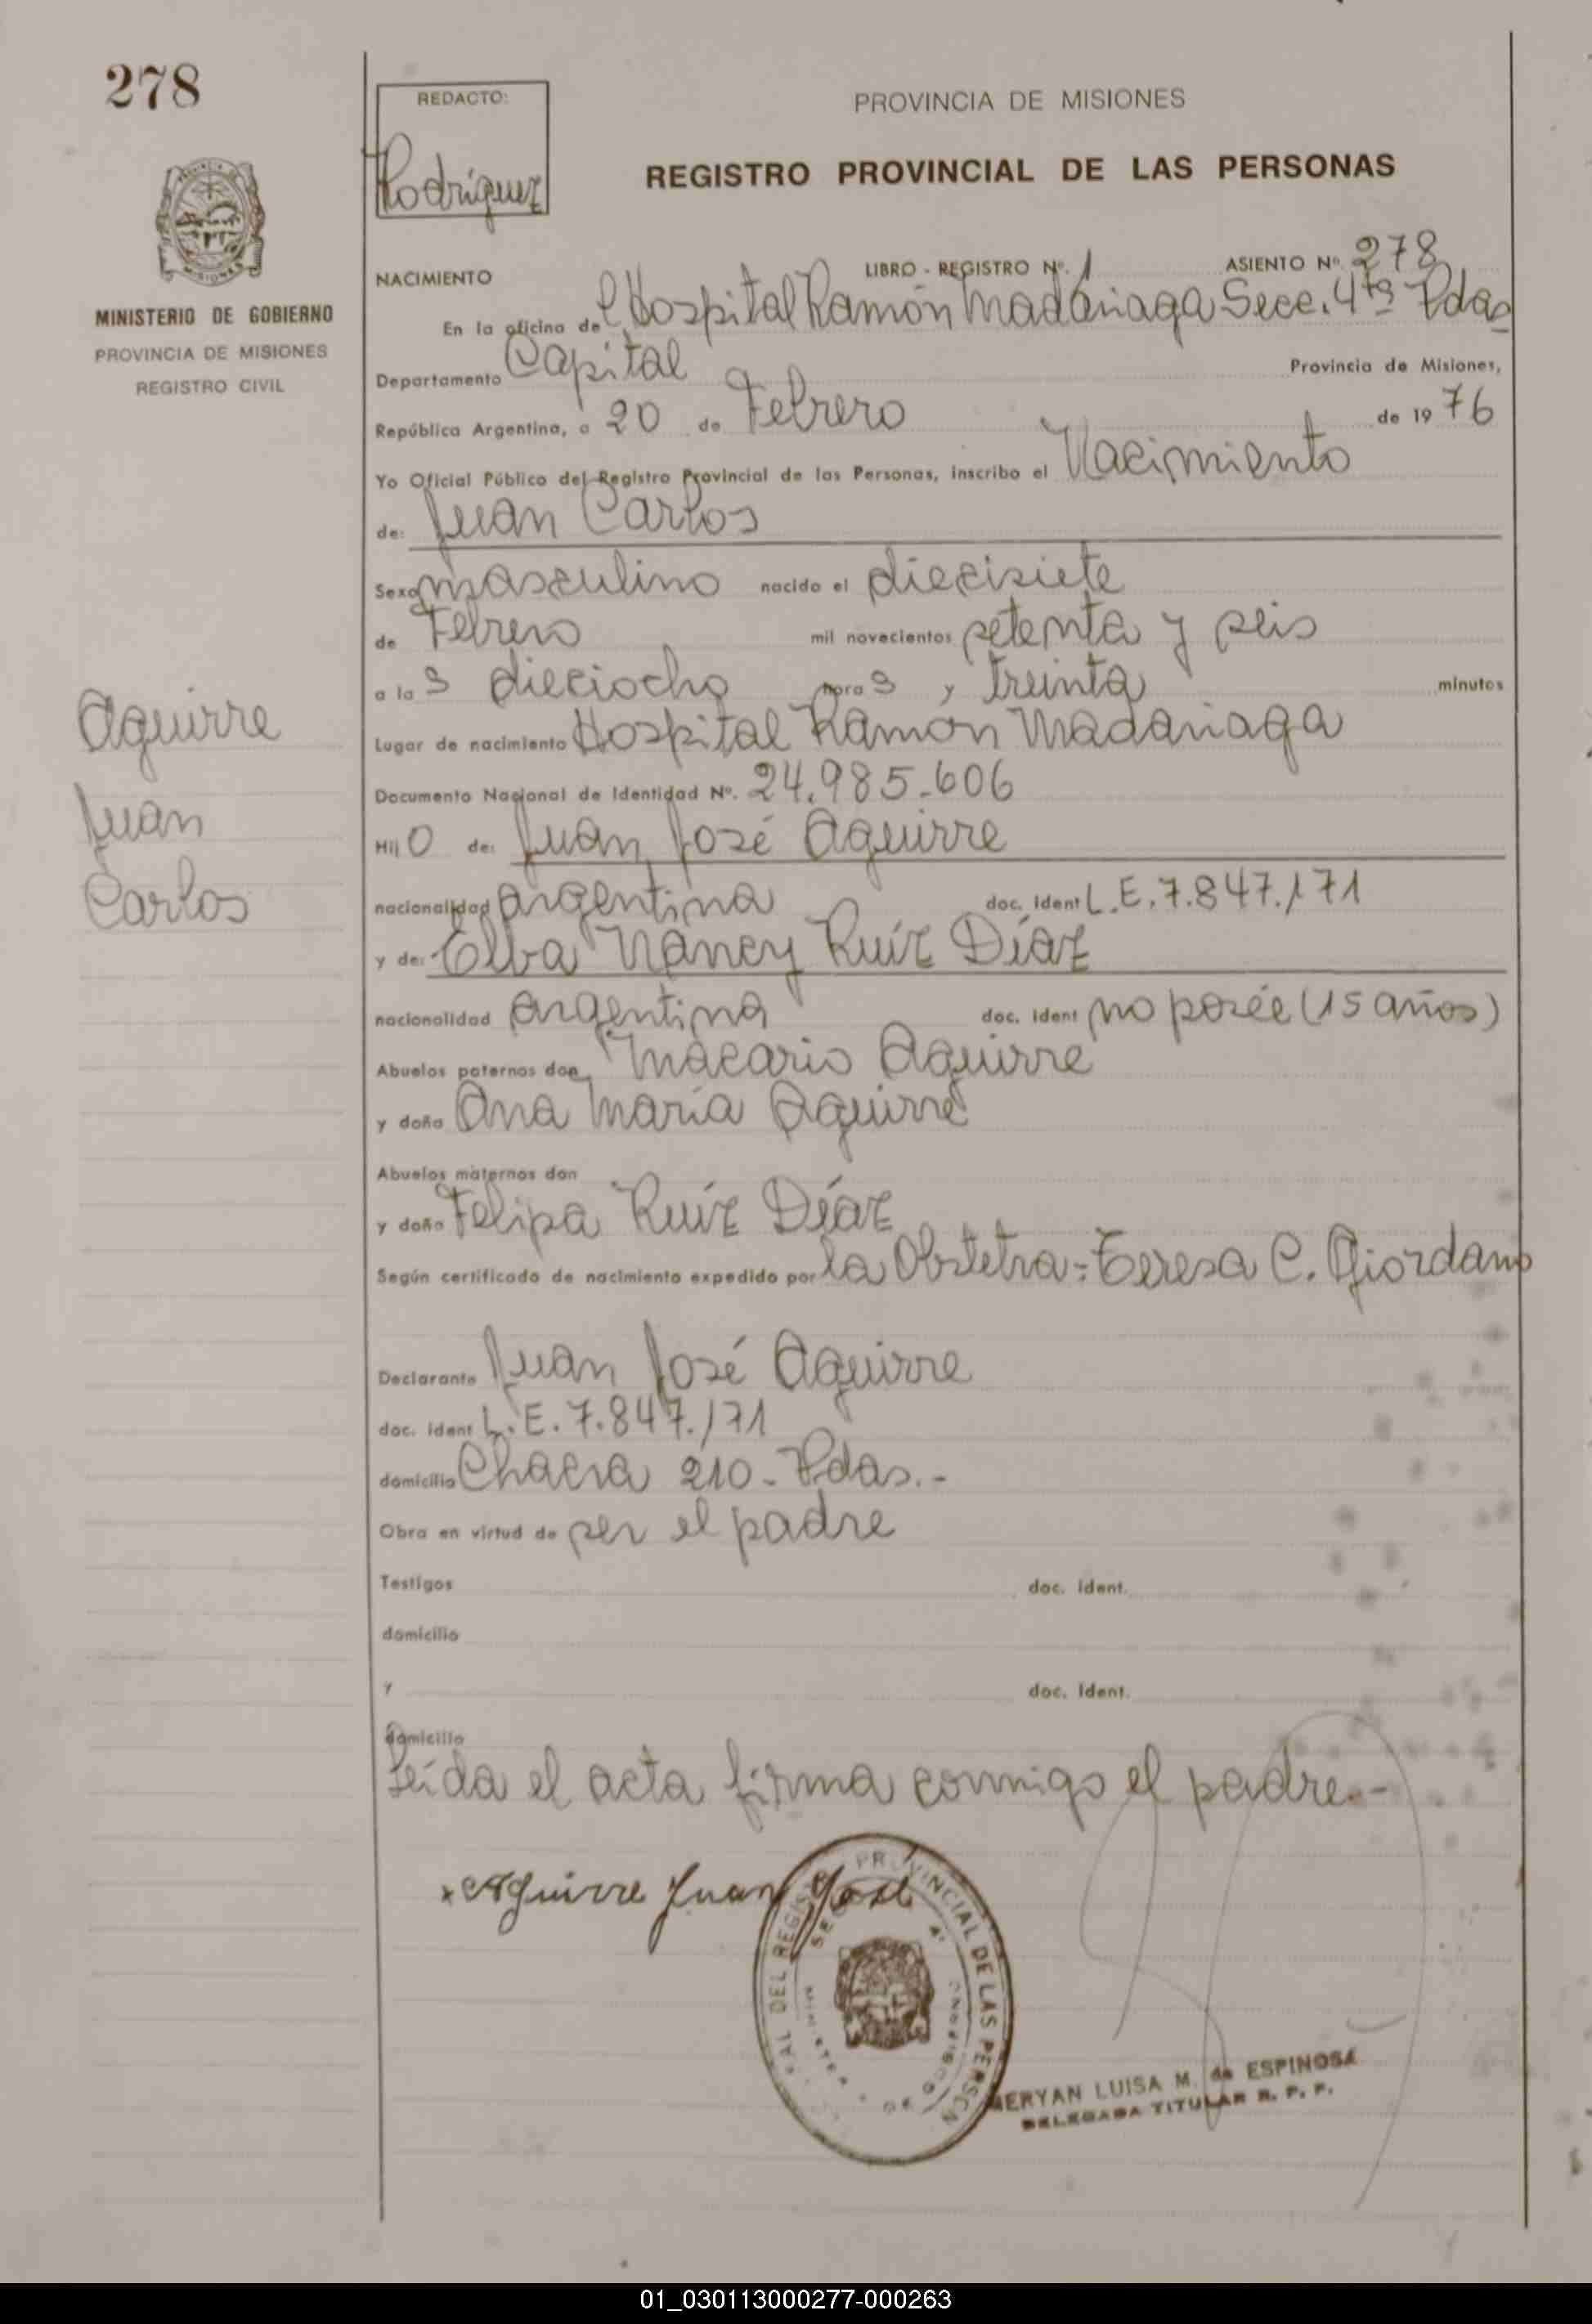 278
REDACTO:
Rodríguez
PROVINCIA DE MISIONES
REGISTRO PROVINCIAL DE LAS PERSONAS
MINISTERIO DE GOBIERNO
PROVINCIA DE MISIONES
REGISTRO CIVIL
NACIMIENTO LIBRO - REGISTRO Nº. 1 ASIENTO Nº. 278
En la oficina del Hospital Ramón Madariaga Secc. 4ta Pdas
Departamento Capital Provincia de Misiones,
República Argentina, a 20 de Febrero de 1976
Yo Oficial Público del Registro Provincial de las Personas, inscribo el Nacimiento
de: Juan Carlos
Sexo masculino nacido el diecisiete
de Febrero mil novecientos setenta y seis
a las dieciocho horas y treinta minutos
Lugar de nacimiento Hospital Ramón Madariaga
Documento Nacional de Identidad Nº. 24.985.606
Hijo de: Juan José Aguirre
nacionalidad argentina doc. ident L.E. 7.847.171
y de: Elba Nancy Ruíz Díaz
nacionalidad argentina doc. ident no posée (15 años)
Abuelos paternos don Macario Aguirre
y doña Ana María Aguirre
Abuelos maternos don
y doña Felipa Ruíz Díaz
Según certificado de nacimiento expedido por la Obstetra: Teresa C. Giordano
Declarante Juan José Aguirre
doc. ident L.E. 7.847.171
domicilio Chacra 210 - Pdas.-
Obra en virtud de ser el padre
Testigos doc. ident.
domicilio
y doc. ident.
domicilio
Leída el acta firma conmigo el padre.-
x Aguirre Juan José
Aguirre
Juan
Carlos
PROVINCIAL DE LAS PERSON
DEL REGIS
MERYAN LUISA M. de ESPINOSA
DELEGADA TITULAR R. P. P.
01_030113000277-000263